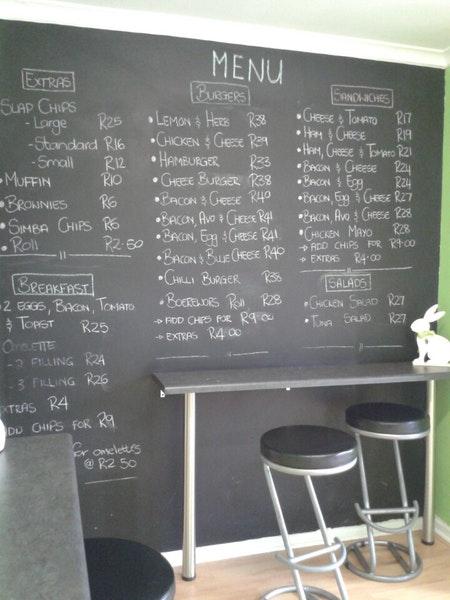 MENU
EXTRAS
SLAP CHIPS
-Large R25
-Standard R16
-Small R12
• MUFFIN R10
• BROWNIES R6
• SIMBA CHIPS R6
• ROLL R2.50
BREAKFAST
2 EGGS, BACON, TOMATO
& TOAST R25
OMELETTE
-2 FILLING R24
-3 FILLING R26
EXTRAS R4
ADD CHIPS FOR R9
for omelettes
@ R2.50
BURGERS
• LEMON & HERB R38
• CHICKEN & CHEESE R39
• HAMBURGER R33
• CHEESE BURGER R38
• BACON & CHEESE R40
• BACON, AVO & CHEESE R41
• BACON, EGG & CHEESE R41
• BACON & BLUE CHEESE R40
• CHILLI BURGER R35
• BOEREWORS ROLL R28
→ ADD CHIPS FOR R9.00
→ EXTRAS R4.00
SANDWICHES
• CHEESE & TOMATO R17
• HAM & CHEESE R19
• HAM, CHEESE & TOMATO R21
• BACON & CHEESE R24
• BACON & EGG R24
• BACON, EGG & CHEESE R27
• BACON, AVO & CHEESE R28
• CHICKEN MAYO R28
→ ADD CHIPS FOR R9.00
→ EXTRAS R4.00
SALADS
• CHICKEN SALAD R27
• TUNA SALAD R27